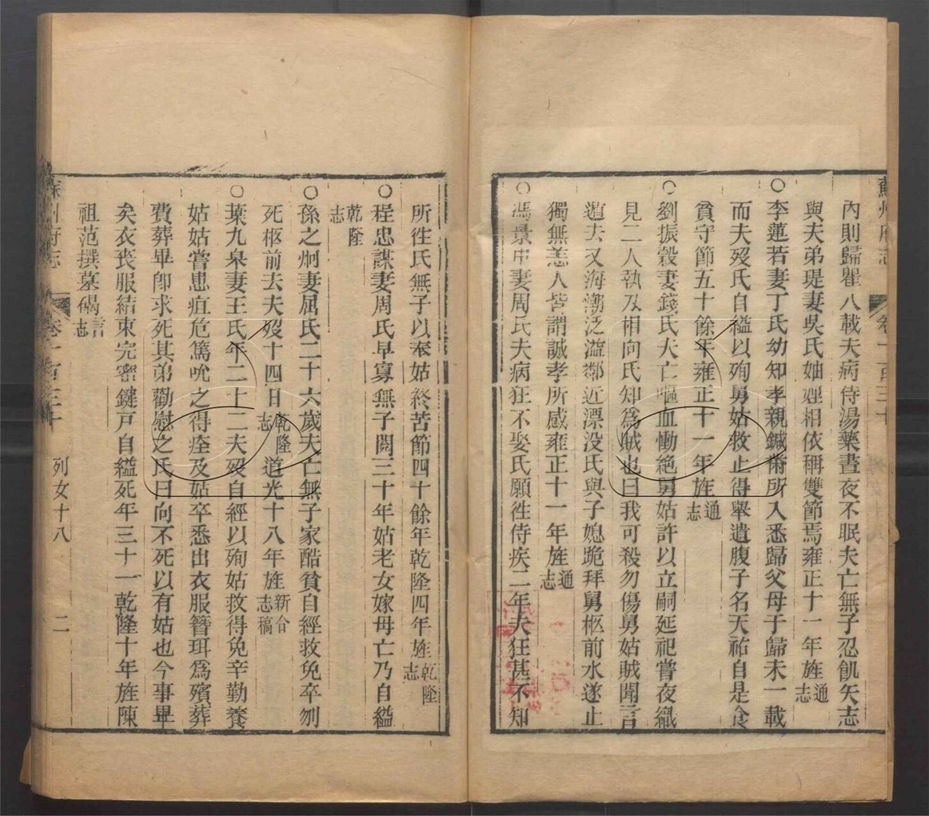 蘇州府志 卷一百三十
內則歸瞿八載夫病侍湯藥晝夜不眠夫亡無子忍飢矢志
與夫弟瑅妻吳氏妯娌相依稱雙節焉雍正十一年旌通志
○李蓮若妻丁氏幼知孝親鍼黹所入悉歸父母于歸未一載
而夫歿氏自縊以殉舅姑救止得舉遺腹子名天祐自是食
貧守節五十餘年雍正十一年旌通志
○劉振穀妻錢氏夫亡嘔血慟絕舅姑許以立嗣延祀嘗夜織
見二人執及相向氏知爲賊也曰我可殺勿傷舅姑賊聞言
遁去又海潮泛溢鄰近漂没氏與子媳跪拜舅柩前水遂止
獨無恙人皆謂誠孝所感雍正十一年旌通志
○馮景中妻周氏夫病狂不娶氏願徃侍疾二年夫狂甚不知
所徃氏無子以奉姑終苦節四十餘年乾隆四年旌乾隆志
○程忠謀妻周氏早寡無子閱三十年姑老女嫁母亡乃自縊
乾隆志
○孫之炯妻屈氏二十六歲夫亡無子家酷貧自經救免卒刎
死柩前去夫歿十四日乾隆志道光十八年旌新合志稿
○葉九臯妻王氏年二十二夫歿自經以殉姑救得免辛勤養
姑姑嘗患疽危篤吮之得痊及姑卒悉出衣服簪珥爲殯葬
費葬畢卽求死其弟勸慰之氏曰向不死以有姑也今事畢
矣衣喪服結束完密鍵戸自縊死年三十一乾隆十年旌陳
祖范撰墓碣言志
蘇州府志 卷一百三十 列女十八 二